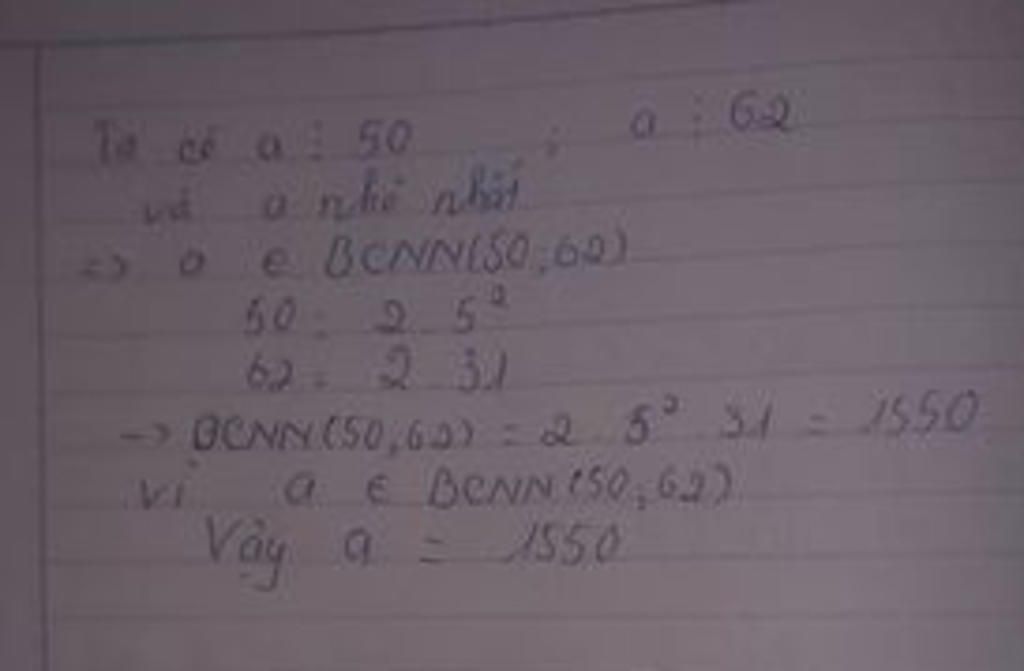 Ta có a ⋮ 50 ; a ⋮ 62
và a nhỏ nhất
=> a ∈ BCNN(50,62)
50 = 2 . 5²
62 = 2 . 31
-> BCNN(50,62) = 2 . 5² . 31 = 1550
vì a ∈ BCNN(50,62)
Vậy a = 1550